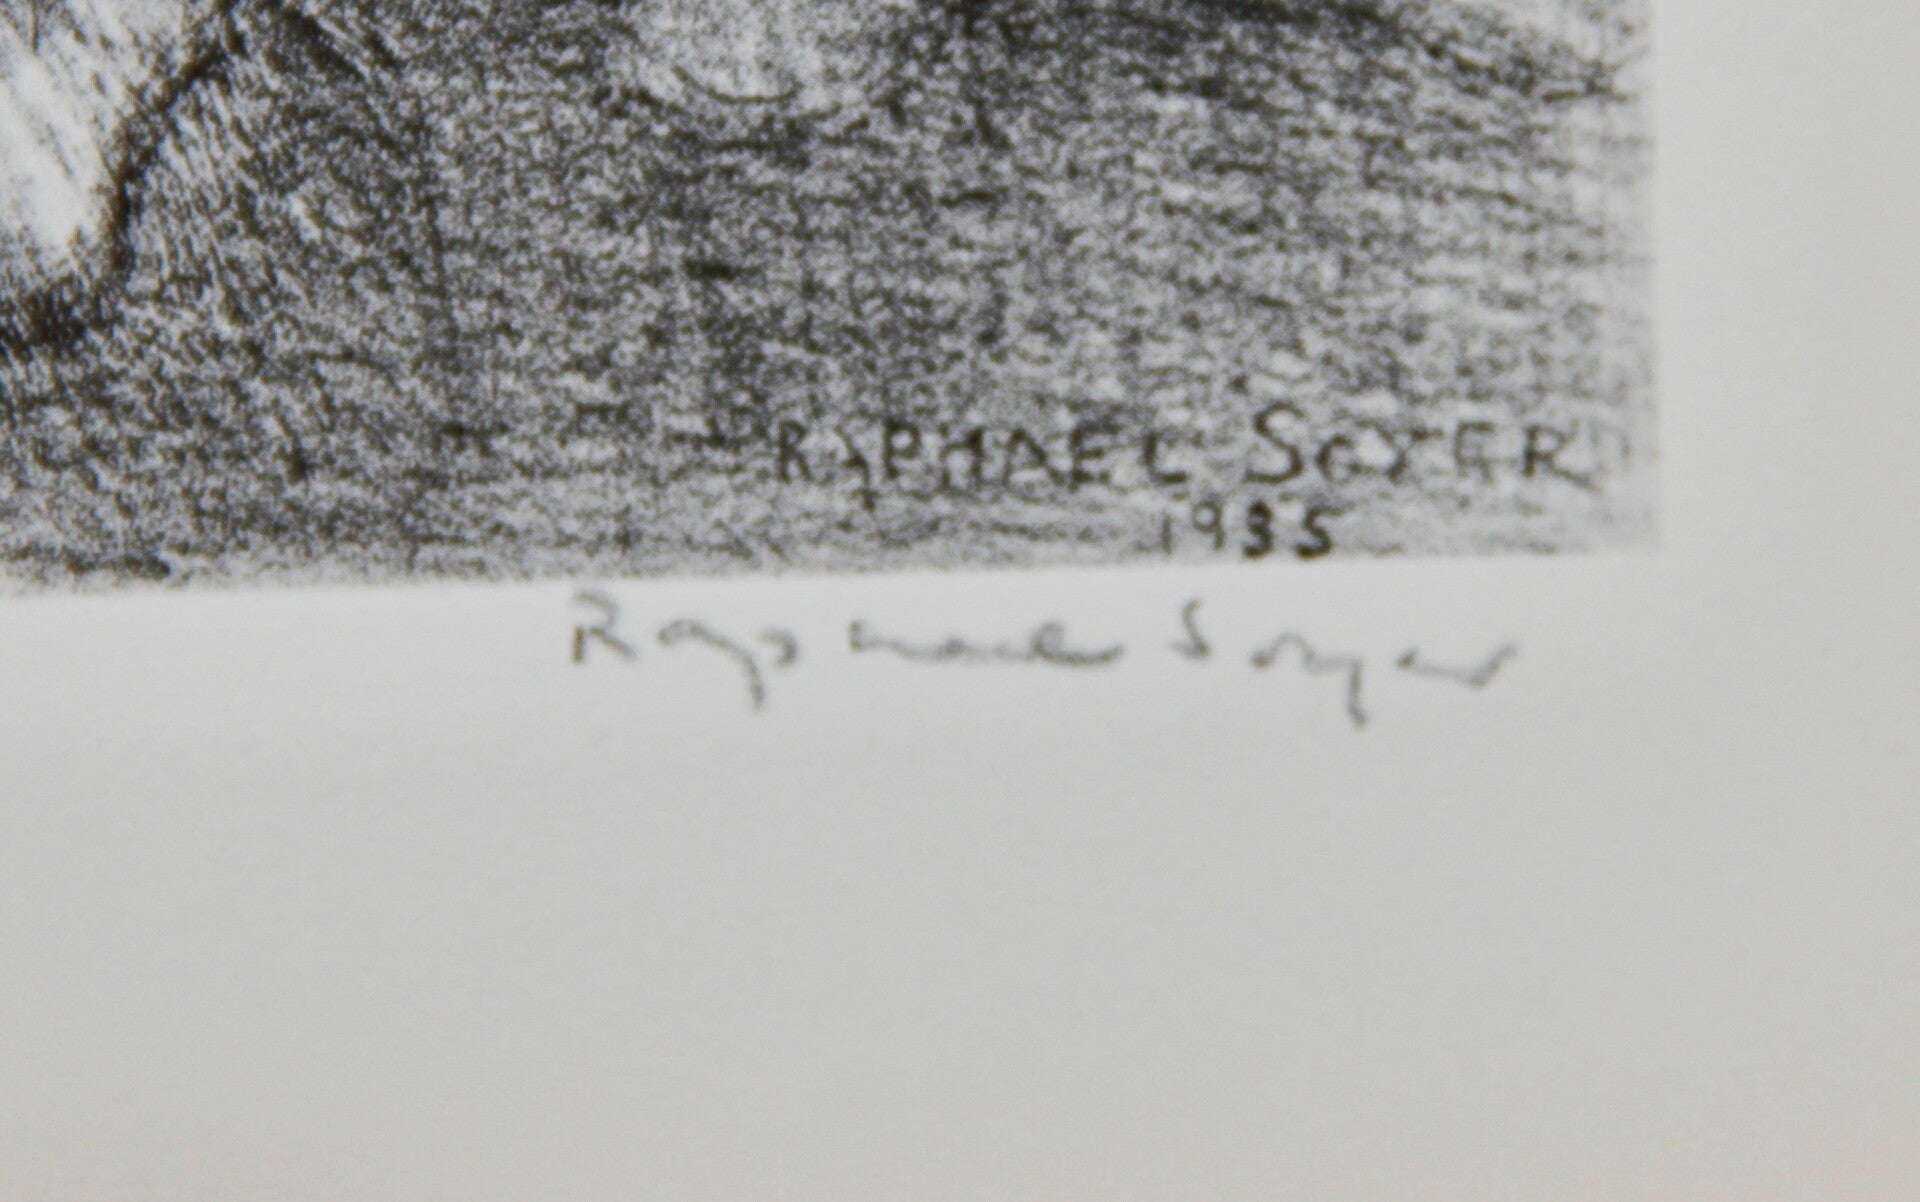 RAPHAEL SOYER
1935
Raphael Soyer